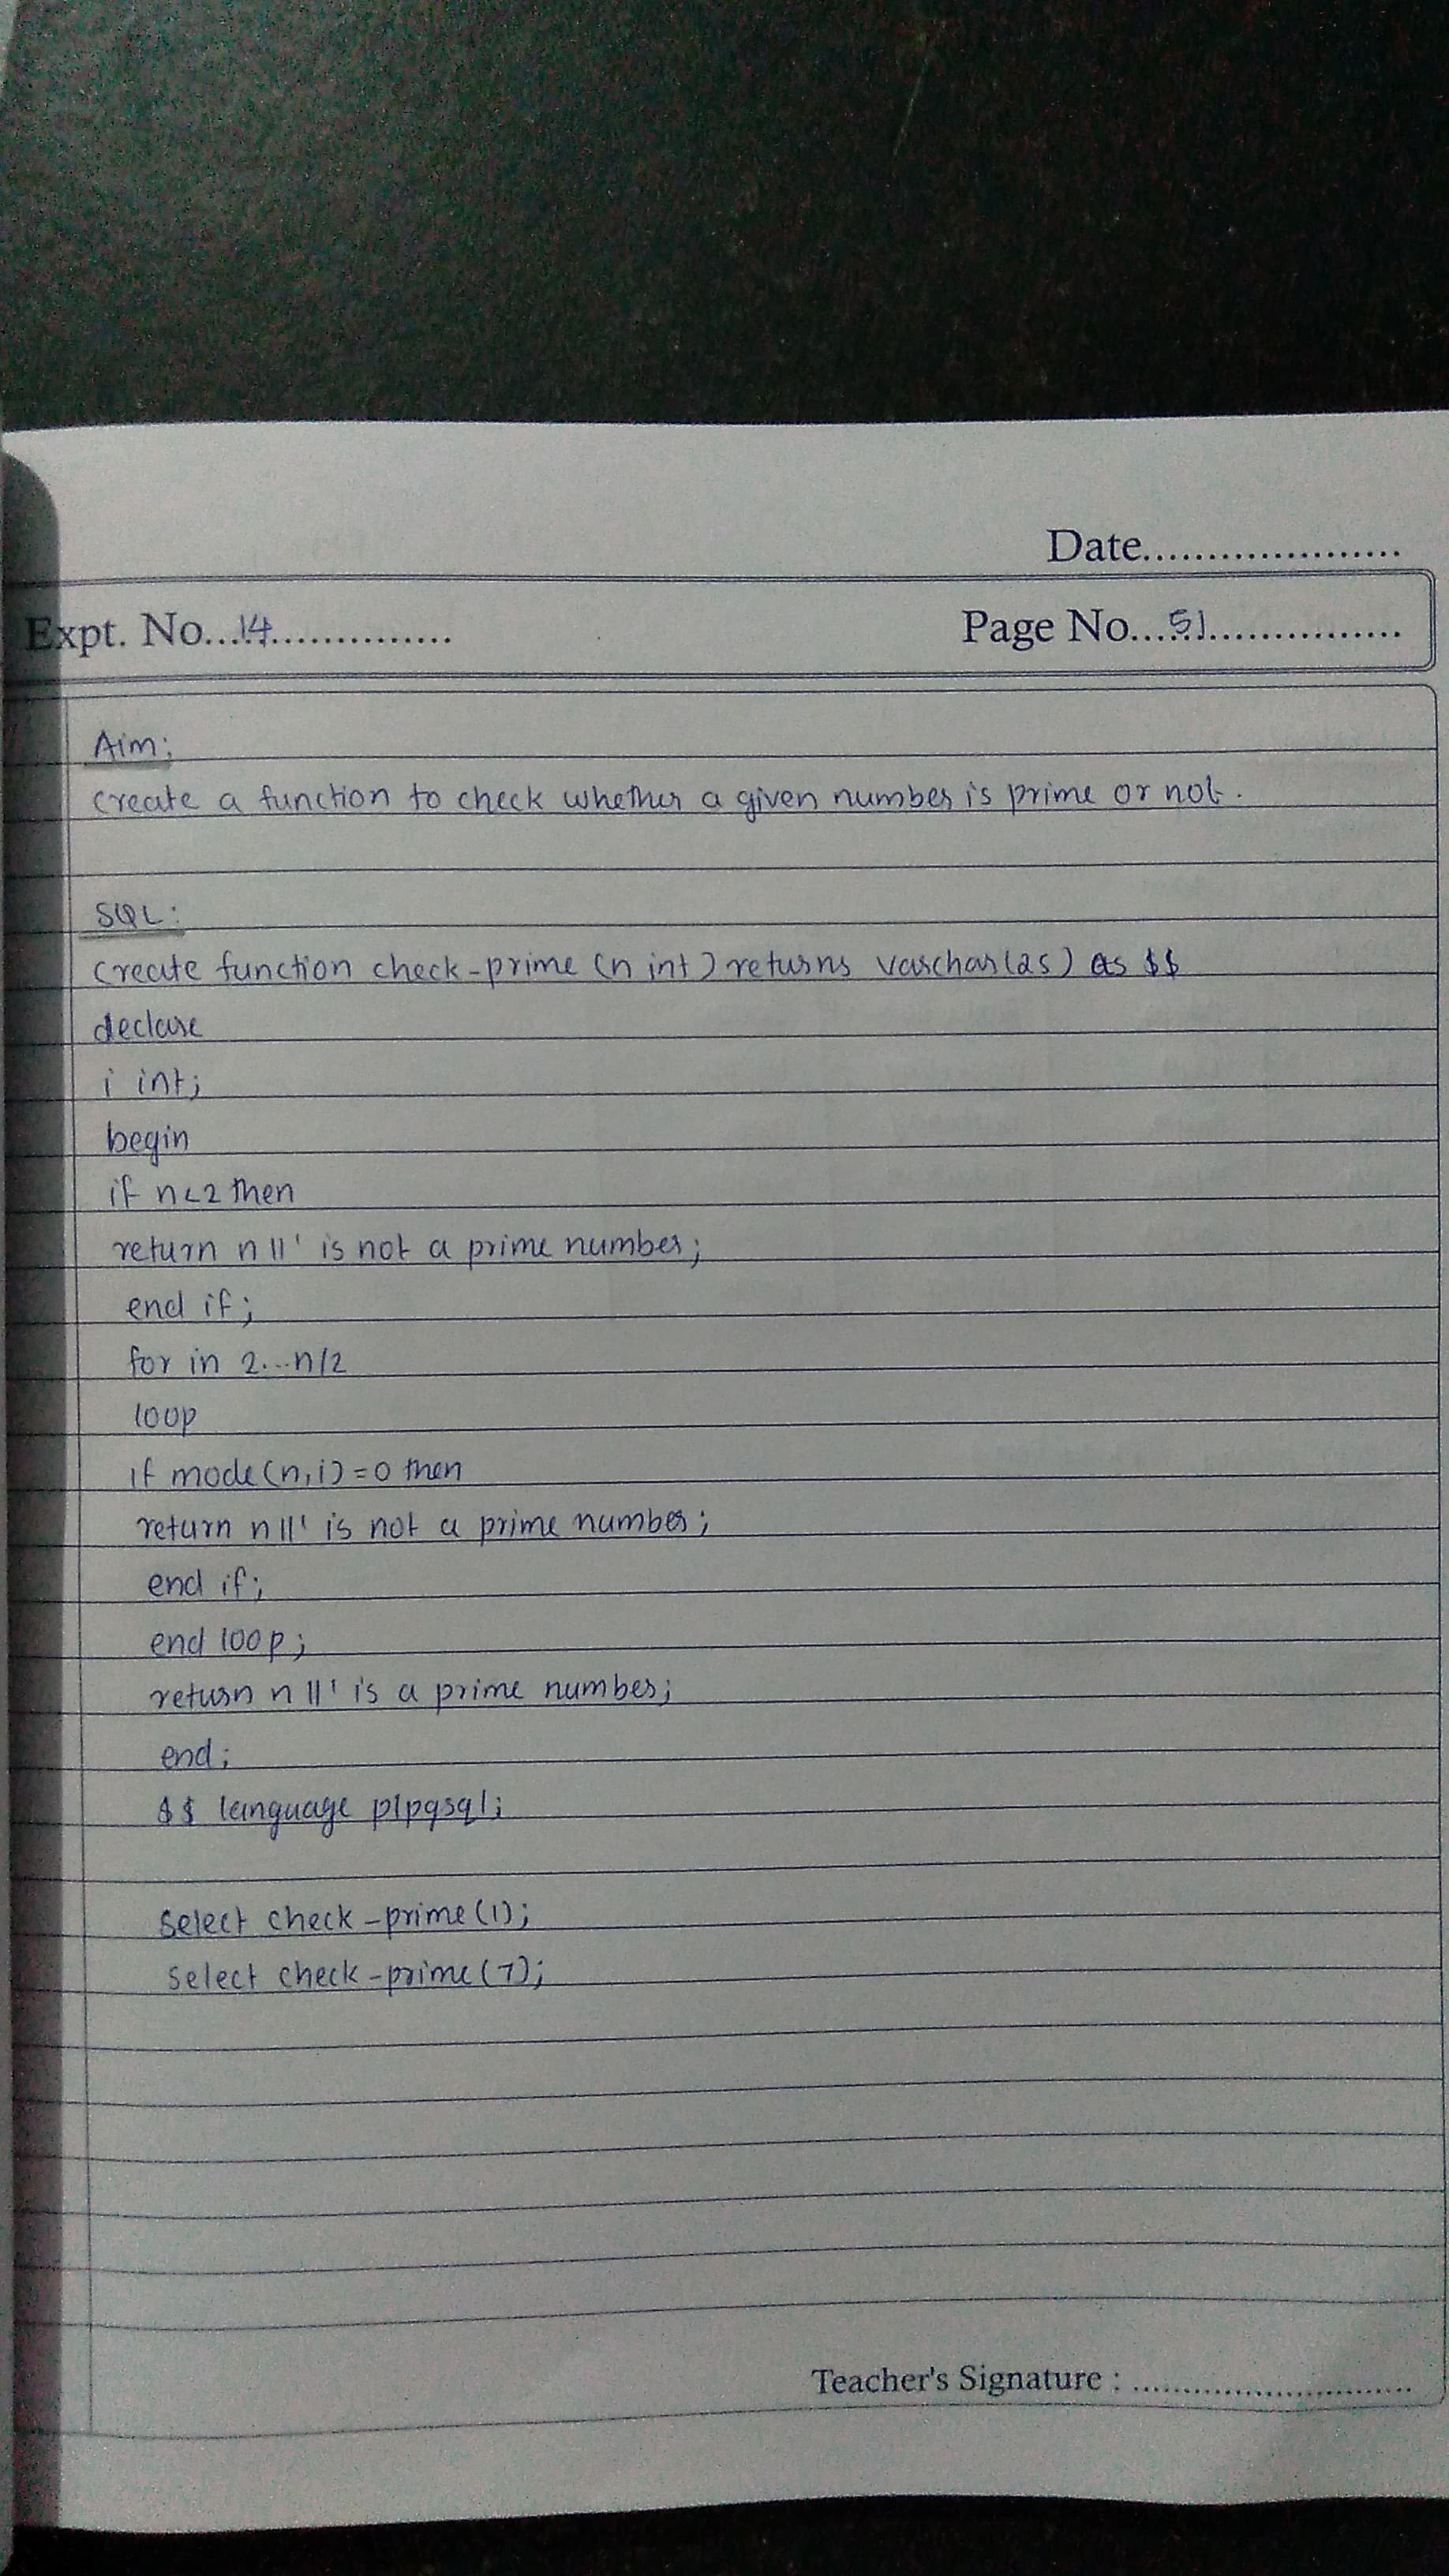 Date....................
Expt. No...14...............
Page No...51...............
Aim:
create a function to check whether a given number is prime or not.
SQL:
create function check-prime (n int) returns varchar(25) as $$
declare
i int;
begin
if n<2 then
return n ||' is not a prime number;
end if;
for in 2...n/2
loop
if mode(n,i)=0 then
return n ||' is not a prime number;
end if;
end loop;
return n ||' is a prime number;
end;
$$ language plpgsql;
select check-prime(1);
select check-prime(7);
Teacher's Signature : ............................